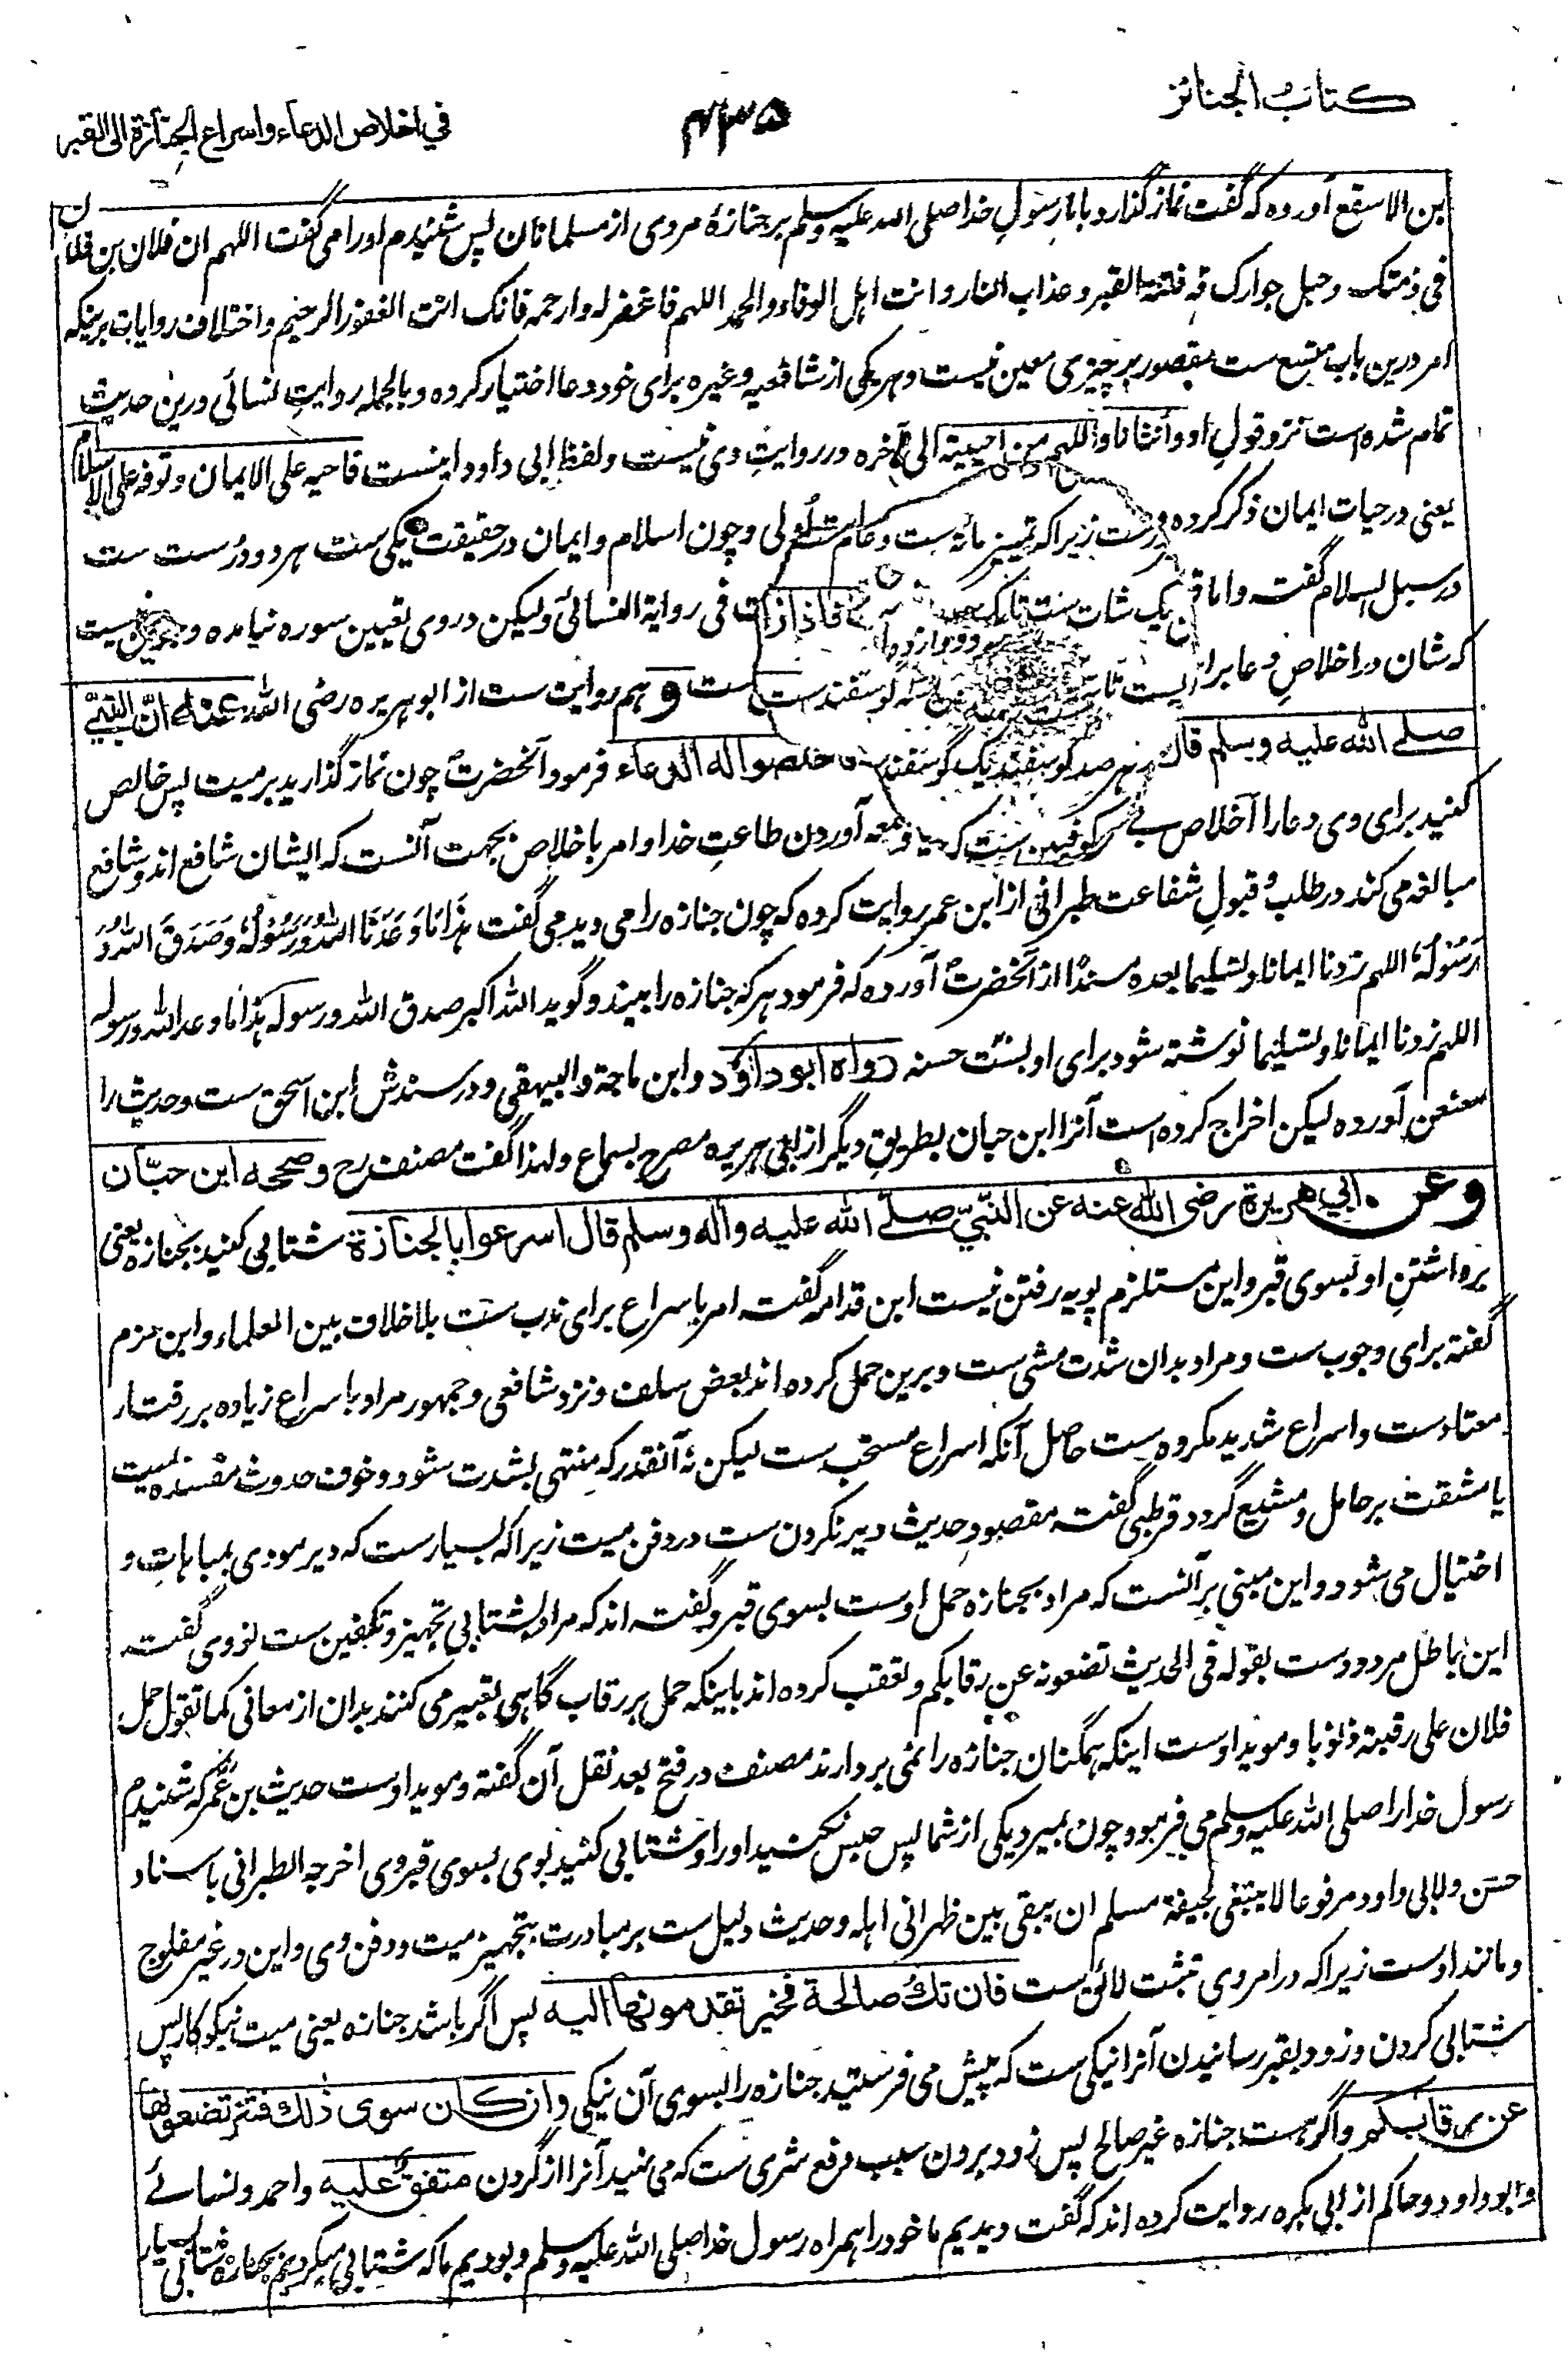 كتاب الجنائز
۴۳۵
في اخلاص الدعاء واسراع الجنازة الى القبر
بن الاسقع آورده كه گفت نماز گذارد با ما رسول خدا صلى الله عليه وسلم بر جنازهٔ مردى از مسلمانان پس شنيدم او را مى گفت اللهم ان فلان بن فلان
فى ذمتك وحبل جوارك قه فتنة القبر وعذاب النار وانت اهل الوفاء والحمد اللهم فاغفر له وارحمه فانك انت الغفور الرحيم واختلاف روايات برينكه
امر درين باب متسع ست مقصور بر چيزى معين نيست وهر يكى از شافعيه وغيره براى خود دعا اختيار كرده وبالجمله روايت نسائى درين حديث
تمام شده است نزد قول او وأنثانا واللهم من احييته الى آخره در روايت وى نيست ولفظ ابى داود اينست فاحيه على الايمان وتوفه على الاسلام
يعنى در حيات ايمان ذكر كرده زيرا كه ولى وچون اسلام وايمان در حقيقت يكى ست هر دو درست ست
در سبل السلام گفت واما فى رواية النسائى وليكن در وى تعيين سوره نيامده و نيست
كه شان در اخلاص دعا براى ست وهم روايت ست از ابو هريره رضى الله عنه انّ النبيّ
صلے الله عليه وسلم قال خلصوا له الدعاء فرمود آنحضرتؐ چون نماز گذاريد بر ميت پس خالص
كنيد براى وى دعا را اخلاص بے آوردن طاعت خدا وامر باخلاص بجهت آنست كه ايشان شافع اند وشافع
مبالغه مى كند در طلب قبول شفاعت طبرانى از ابن عمر روايت كرده كه چون جنازه را مى ديد مى گفت هٰذَا مَا وَعَدَنَا اللهُ وَرَسُولُهُ وَصَدَقَ اللهُ وَ
رَسُولُهُ اللهم زدنا ايمانا وتسليما بعده مسندًا از آنحضرتؐ آورده كه فرمود هر كه جنازه را بيند وگويد الله اكبر صدق الله ورسوله هٰذا ما وعد الله ورسوله
اللهم زدنا ايمانا وتسليما نوشته شود براى او بست حسنه رواه ابو داؤد وابن ماجة والبيهقى ودر سندش ابن اسحق ست وحديث را
معنعن آورده ليكن اخراج كرده است آنرا ابن حبان بطريق ديگر از ابى هريره مصرح بسماع ولهذا گفت مصنف رح وصححه ابن حبّان
وعن ابي هريرة رضى الله عنه عن النّبيّ صلے الله عليه وآله وسلم قال اسرعوا بالجنازة شتابى كنيد بجنازه يعنى
برداشتن او بسوى قبر واين مستلزم پويه رفتن نيست ابن قدامه گفت امر باسراع براى ندب ست بلا خلاف بين العلماء وابن حزم
گفته براى وجوب ست ومراد بدان شدت مشى ست وبرين حمل كرده اند بعض سلف ونزد شافعى وجمهور مراد باسراع زياده بر رفتار
معتادست واسراع شديد مكروه ست حاصل آنكه اسراع مستحب ست ليكن نه آنقدر كه منتهى بشدت شود وخوف حدوث مفسده بميت
يا مشقت بر حامل ومشيع گردد قرطبى گفته مقصود حديث دير نكردن ست در دفن ميت زيرا كه بسيارست كه دير مودى بمباهات و
اختيال مى شود واين مبنى بر آنست كه مراد بجنازه حمل اوست بسوى قبر وگفته اند كه مراد بشتابى تجهيز وتكفين ست نووى گفته
اين باطل مردودست بقوله فى الحديث تضعونه عن رقابكم وتعقب كرده اند باينكه حمل بر رقاب گاهى تعبير مى كنند بدان از معانى كما تقول حمل
فلان على رقبته ذنوبا ومويد اوست اينكه همگنان جنازه را نمى بردارند مصنف در فتح بعد نقل آن گفته ومويد اوست حديث بن عُمر كه شنيدم
رسول خدا را صلى الله عليه وسلم مى فرمود چون بميرد يكى از شما پس حبس نكنيد او را وشتابى كنيد بوى بسوى قبر وى اخرجه الطبرانى باسناد
حسن ولابى داود مرفوعا لا ينبغى لجيفة مسلم ان يبقى بين ظهرانى اهله وحديث دليل ست بر مبادرت بتجهيز ميت ودفن وى واين در غير مفلوج
ومانند اوست زيرا كه در امر وى تثبت لائق ست فان تك صالحة فخير تقدمونها اليه پس اگر باشد جنازه يعنى ميت نيكوكار پس
شتابى كردن وزود بقبر رسانيدن آنرا نيكى ست كه پيش مى فرستيد جنازه را بسوى آن نيكى وان كان سوى ذلك فشر تضعونها
عن رقابكم واگر هست جنازه غير صالح پس زود بردن سبب رفع شرى ست كه مى نهيد آنرا از گردن متفق عليه واحمد ونسائے
وابو داود وحاكم از ابى بكره روايت كرده اند كه گفت ديديم ما خود را همراه رسول خدا صلى الله عليه وسلم وبوديم ما كه شتابى ميكرديم بجنازه شتابى بسيار